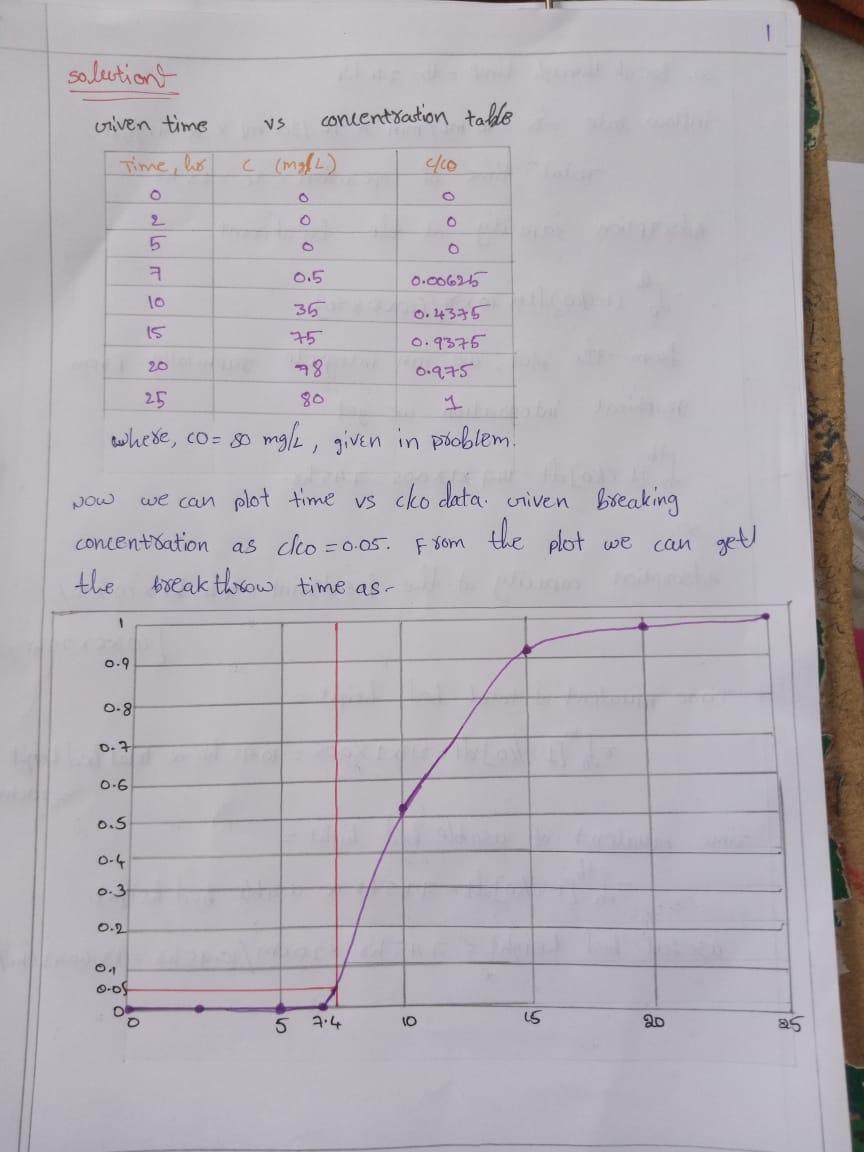 1
solution:
Given time vs concentration table
Time, hr C (mg/L) C/CO
0 0 0
2 0 0
5 0 0
7 0.5 0.00625
10 35 0.4375
15 75 0.9375
20 78 0.975
25 80 1
where, CO = 80 mg/L, given in problem.
NOW we can plot time vs c/co data. Given breaking
concentration as c/co = 0.05. From the plot we can get
the break throw time as-
1
0.9
0.8
0.7
0.6
0.5
0.4
0.3
0.2
0.1
0.05
0
0 5 7.4 10 15 20 25